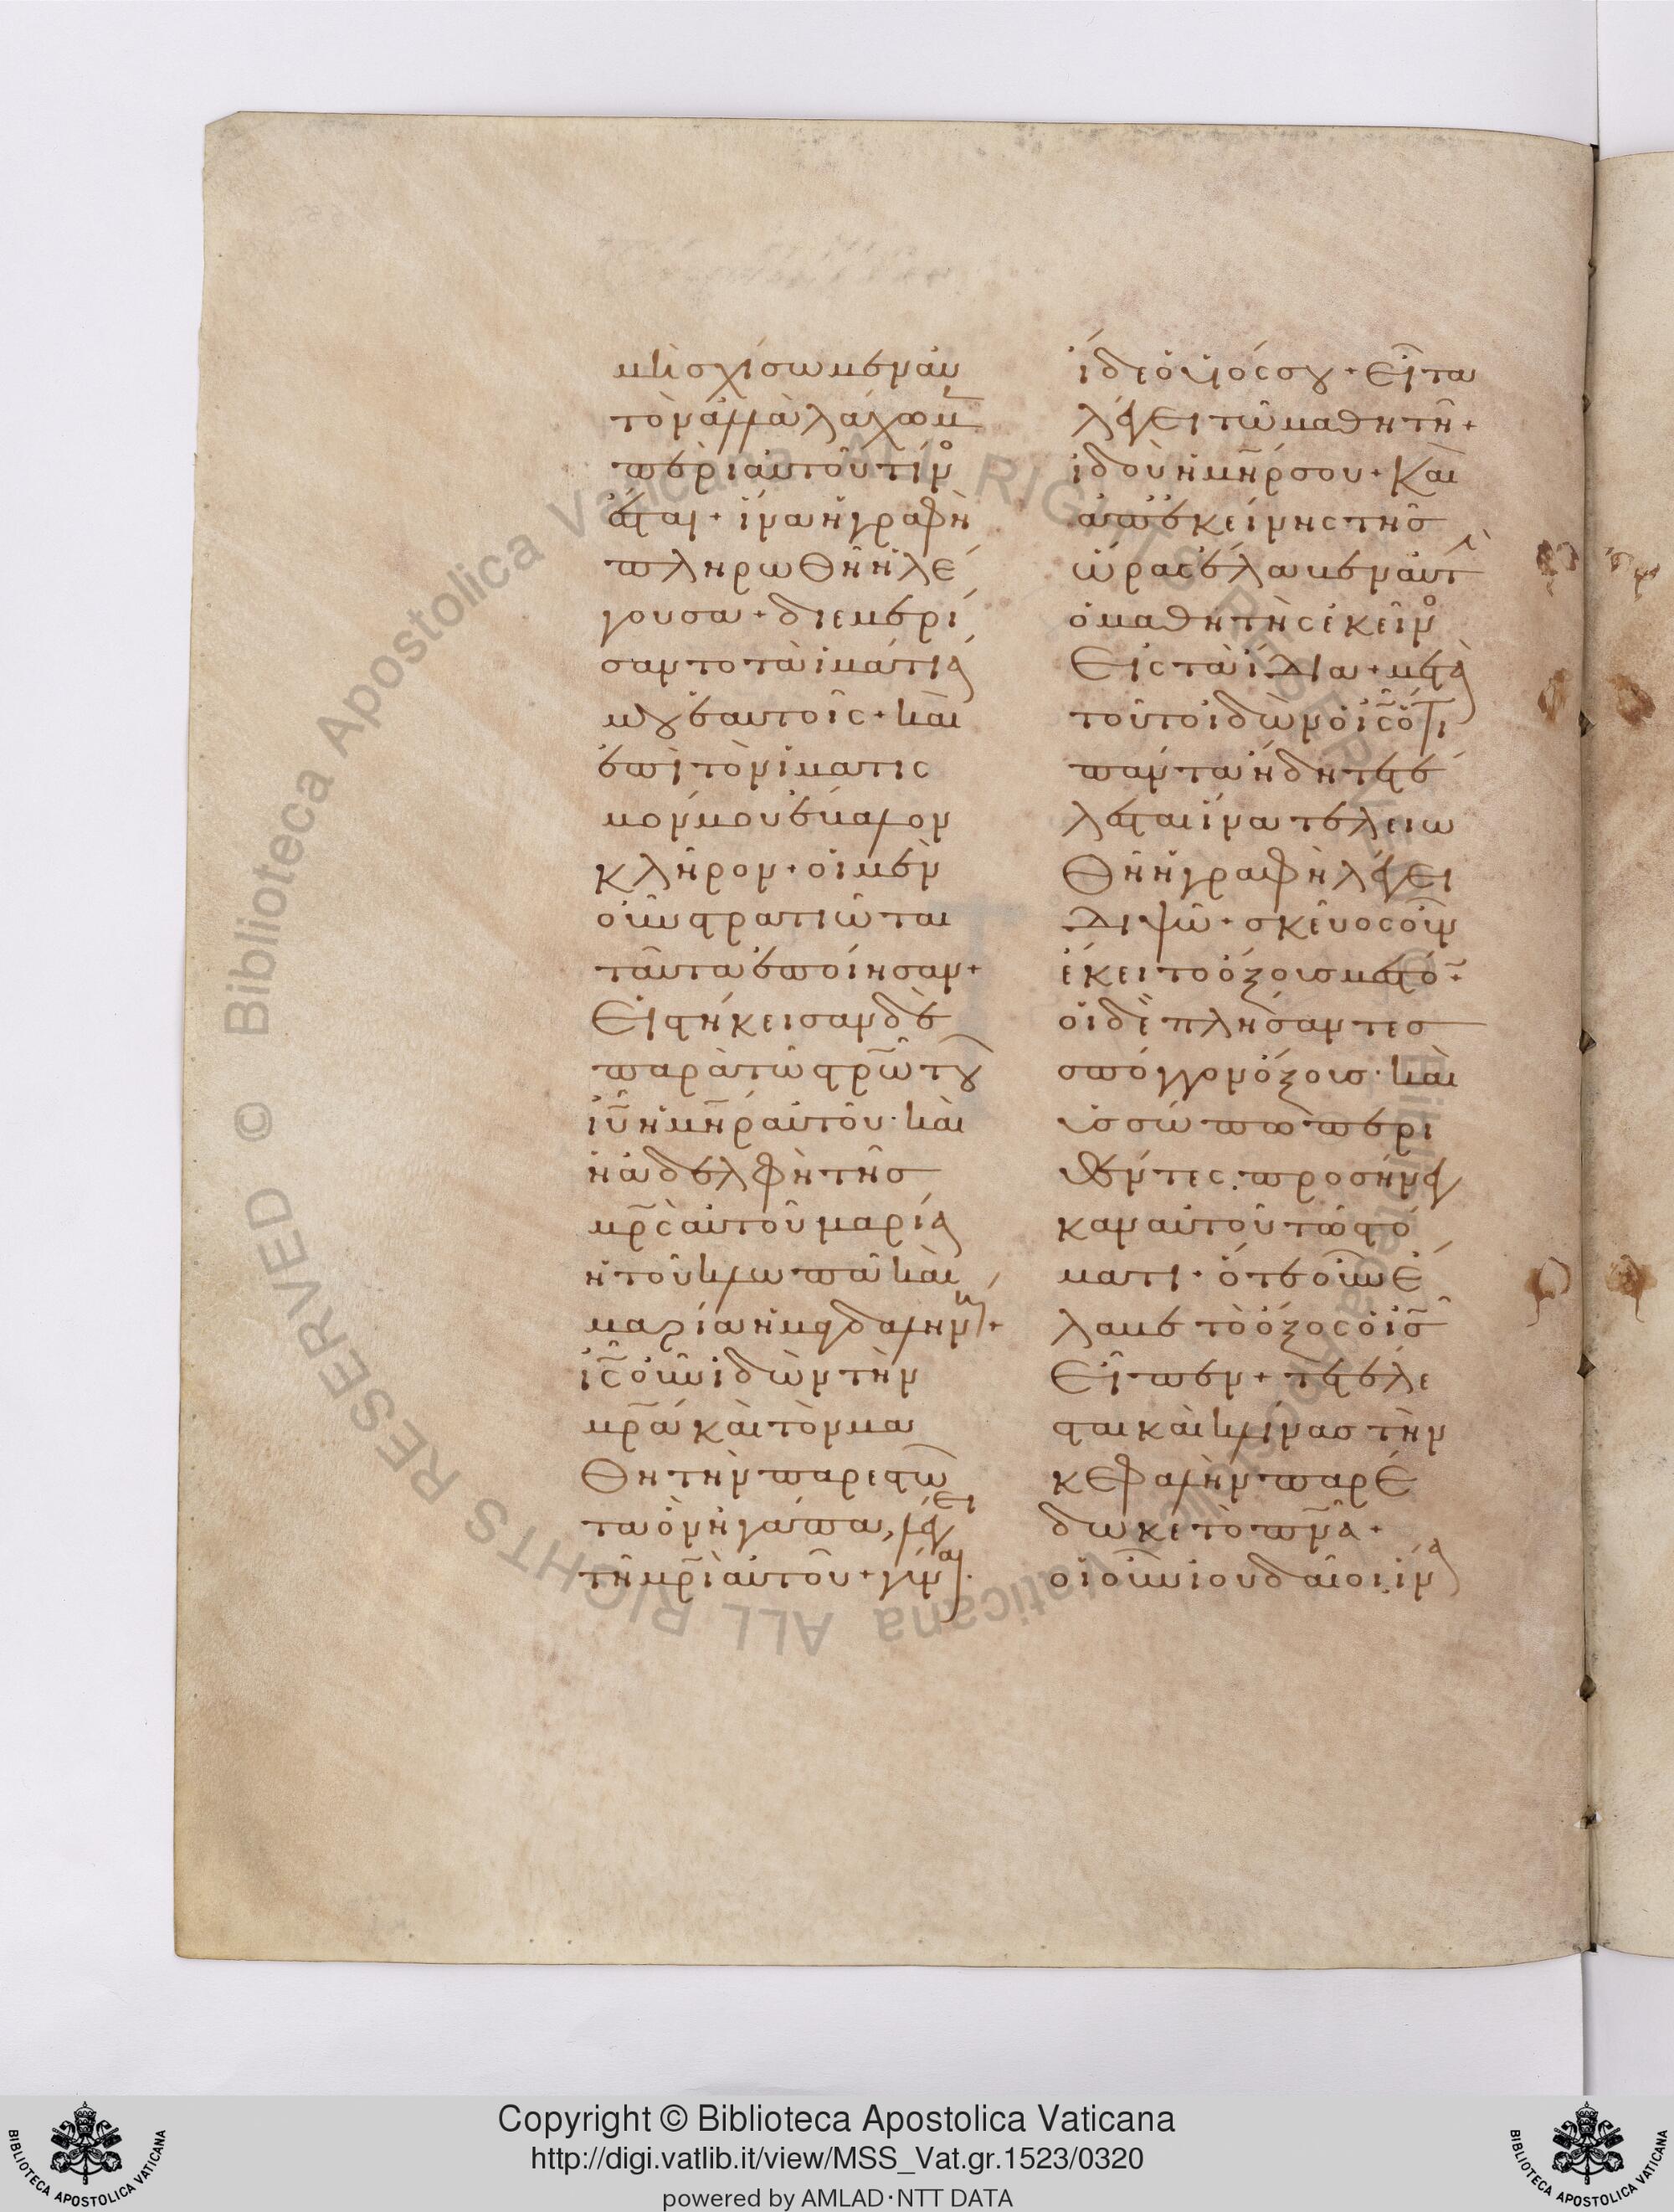 μὴ σχίσωμεν αὐ
τὸν ἀλλὰ λάχωμ
περὶ αὐτοῦ τίν
ἔσται + ἵνα ἡ γραφὴ
πληρωθῆ ἡ λέ
γουσα + διεμερί
σαντο τὰ ἱμάτιά
μου ἑαυτοῖς + καὶ
ἐπὶ τὸν ἱματισ
μόν μου ἔβαλον
κλῆρον + οἱ μὲν
οὖν στρατιῶται
ταῦτα ἐποίησαν +
Εἱστήκεισαν δὲ
παρὰ τῶ στρ̅ω τοῦ
ι̅υ ἡ μη̅ρ αὐτοῦ · καὶ
ἡ ἀδελφὴ τῆς
μρ̅ς αὐτοῦ μαρία
ἡ τοῦ κλωπᾶ καὶ
μαρία ἡ μαγδαλην +
ι̅ς οὖν ἰδὼν τὴν
μρ̅α καὶ τὸν μα
θητὴν παρεστῶ
τα ὃν ἠγάπα, λέγει
τῆ μρ̅ὶ αὐτοῦ + γύναι ·
ἴδε ὁ υἱός σου + Εἶτα
λέγει τῶ μαθητῆ +
ἰδοὺ ἡ μη̅ρ σου + Καὶ
ἀπ' ἐκείνης τῆς
ὥρας ἔλαβεν αὐτ
ὁ μαθητὴς ἐκεῖν
Εἰς τὰ ἴδια + μετὰ
τοῦτο ἰδὼν ὁ ι̅ς ὅτι
πάντα ἤδη τετέ
λεσται ἵνα τελειω
θῆ ἡ γραφὴ λέγει
διψῶ + σκεῦος οὖν
ἔκειτο ὄξους μεστό +
οἱ δὲ πλήσαντες
σπόγγον ὄξους · καὶ
ὑσσώπω περι
θέντες · προσήνεγ
καν αὐτοῦ τῶ στό
ματι · ὅτε οὖν ἔ
λαβε τὸ ὄξος ὁ ι̅ς
Εἶπεν + τετέλε
σται καὶ κλίνας τὴν
κεφαλὴν παρέ
δωκε τὸ πν̅α +
οἱ οὖν ἰουδαῖοι ἵνα
Copyright © Biblioteca Apostolica Vaticana
http://digi.vatlib.it/view/MSS_Vat.gr.1523/0320
powered by AMLAD·NTT DATA
© Biblioteca Apostolica Vaticana ALL RIGHTS RESERVED
© Biblioteca Apostolica Vaticana ALL RIGHTS RESERVED
BIBLIOTECA APOSTOLICA VATICANA
BIBLIOTECA APOSTOLICA VATICANA